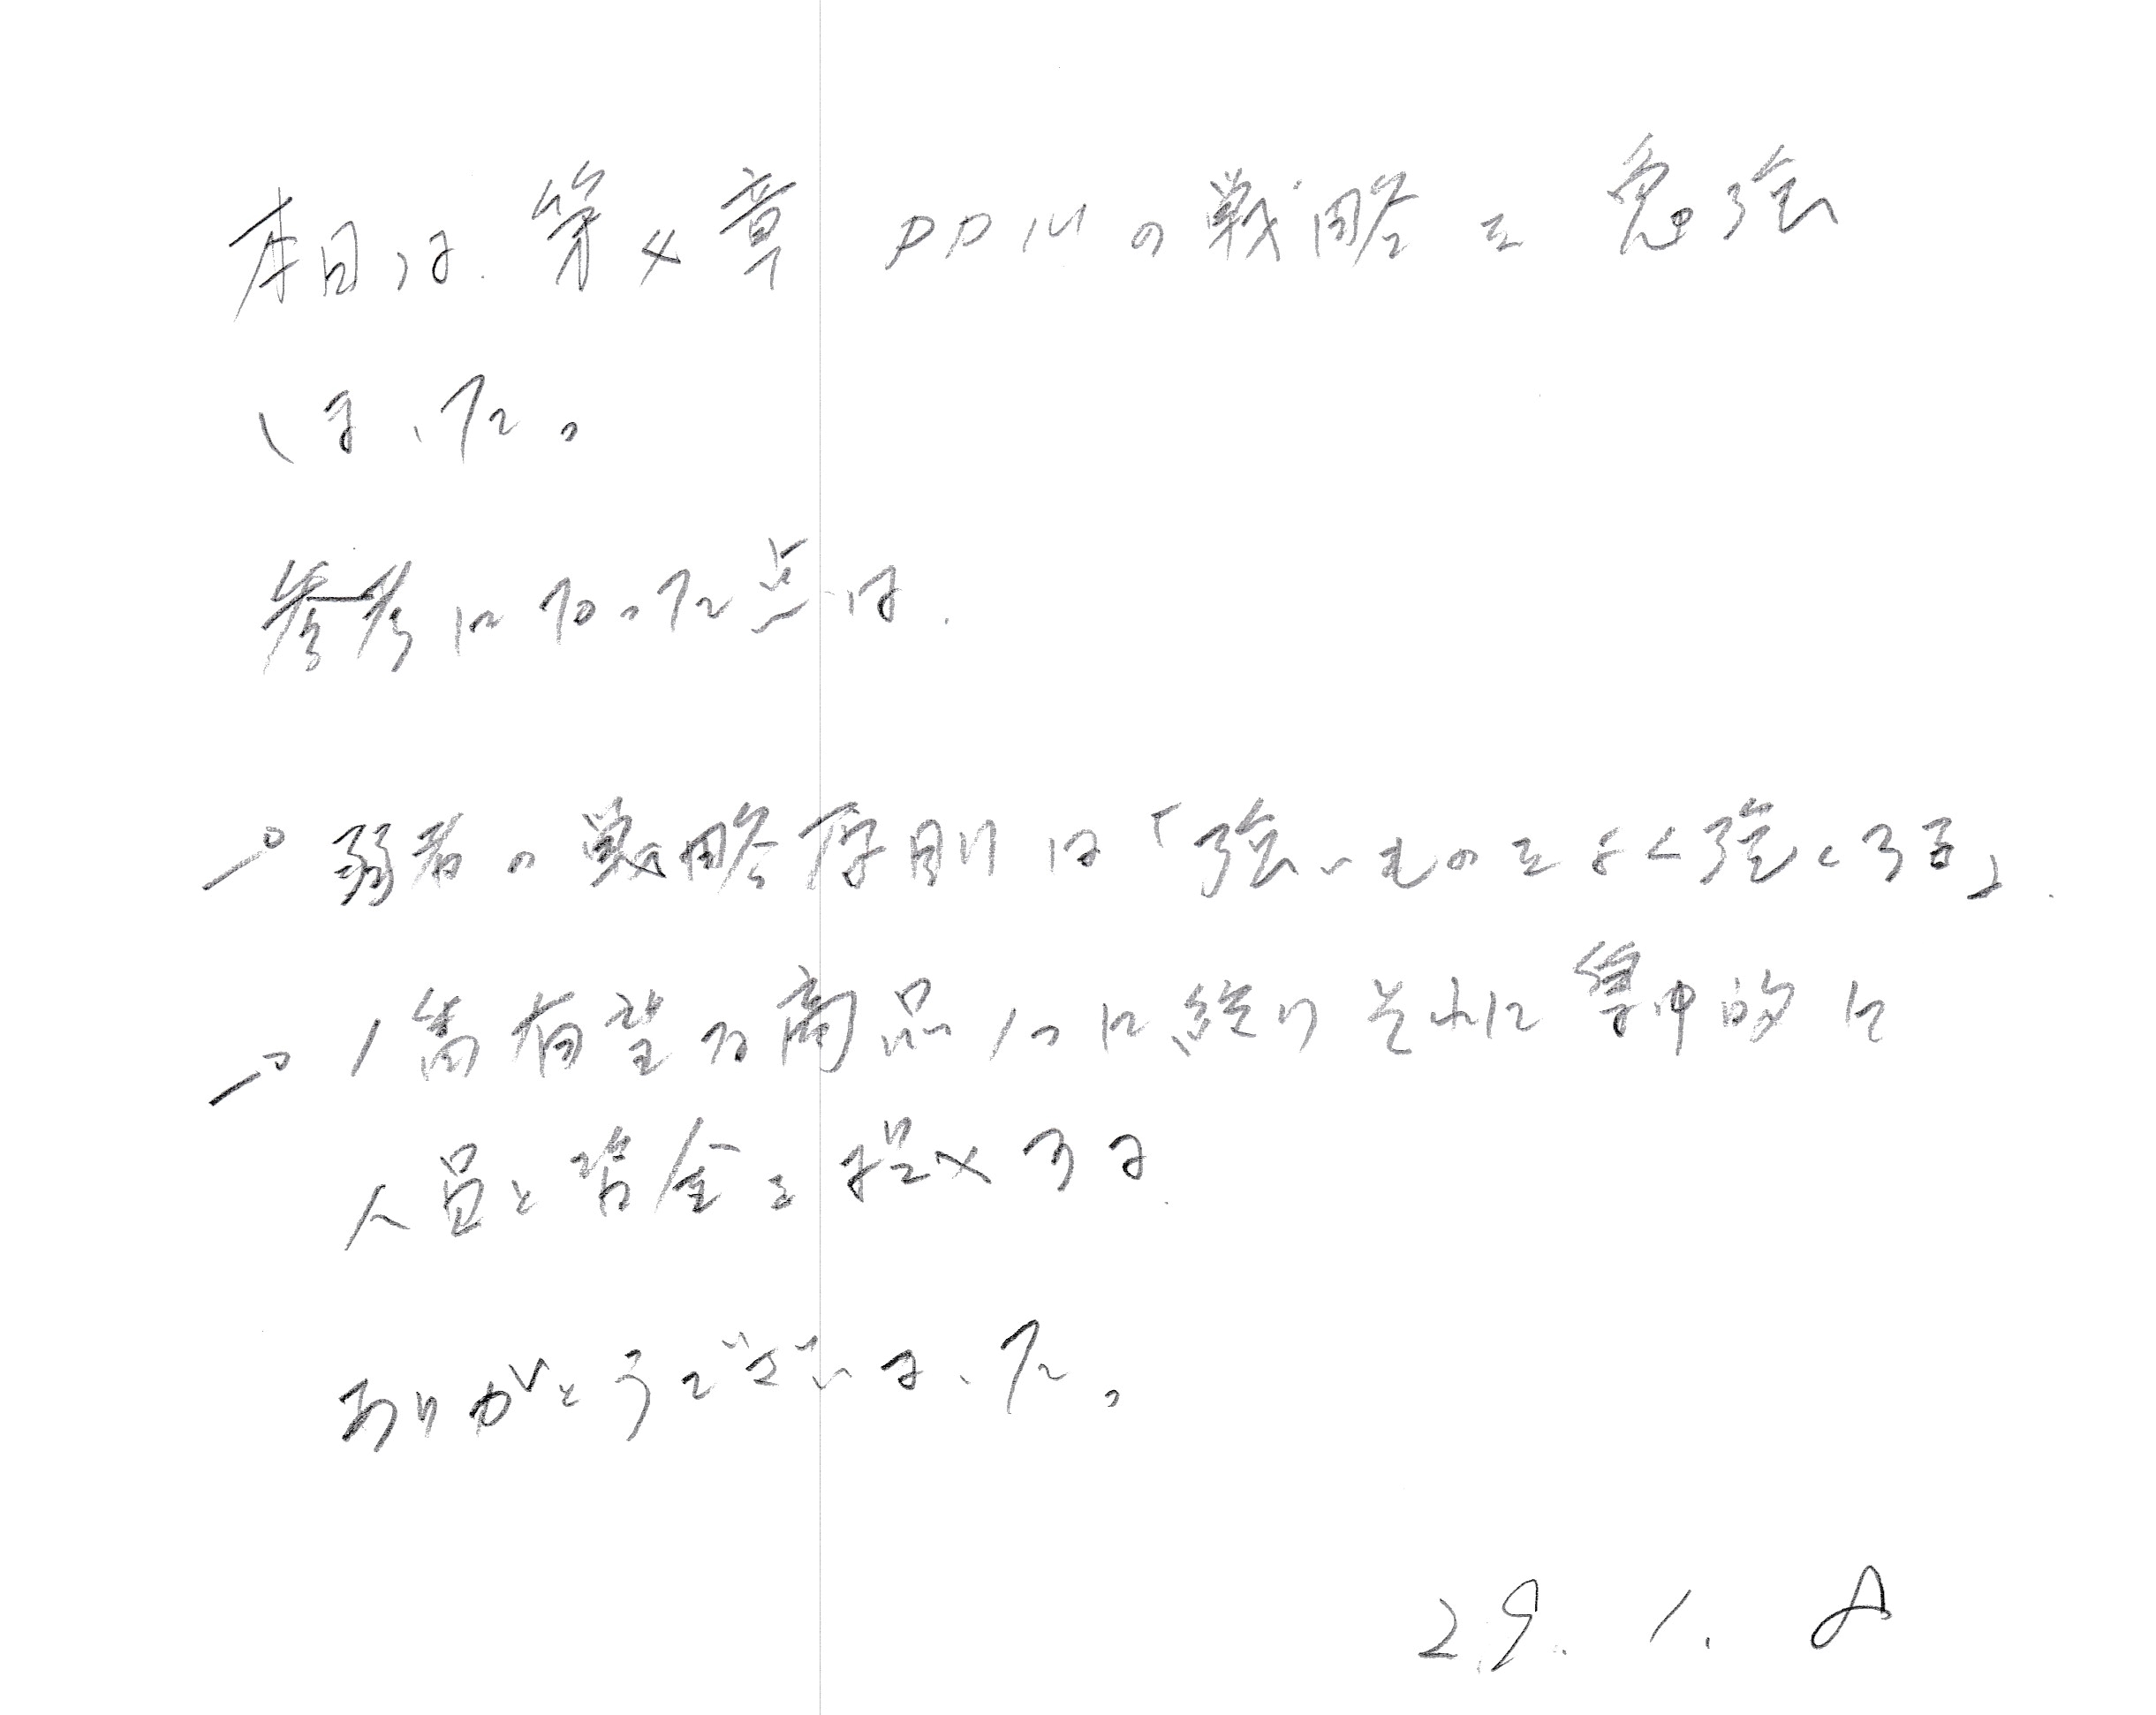 本日は、第4章 PPMの戦略を勉強
しました。
参考になった点は、
→ 弱者の戦略原則は「強いものをよく強くする」
→ 1番有望な商品1つに絞りそれに集中的に
人員と資金を投入する
ありがとうございました。
29. 1. 8